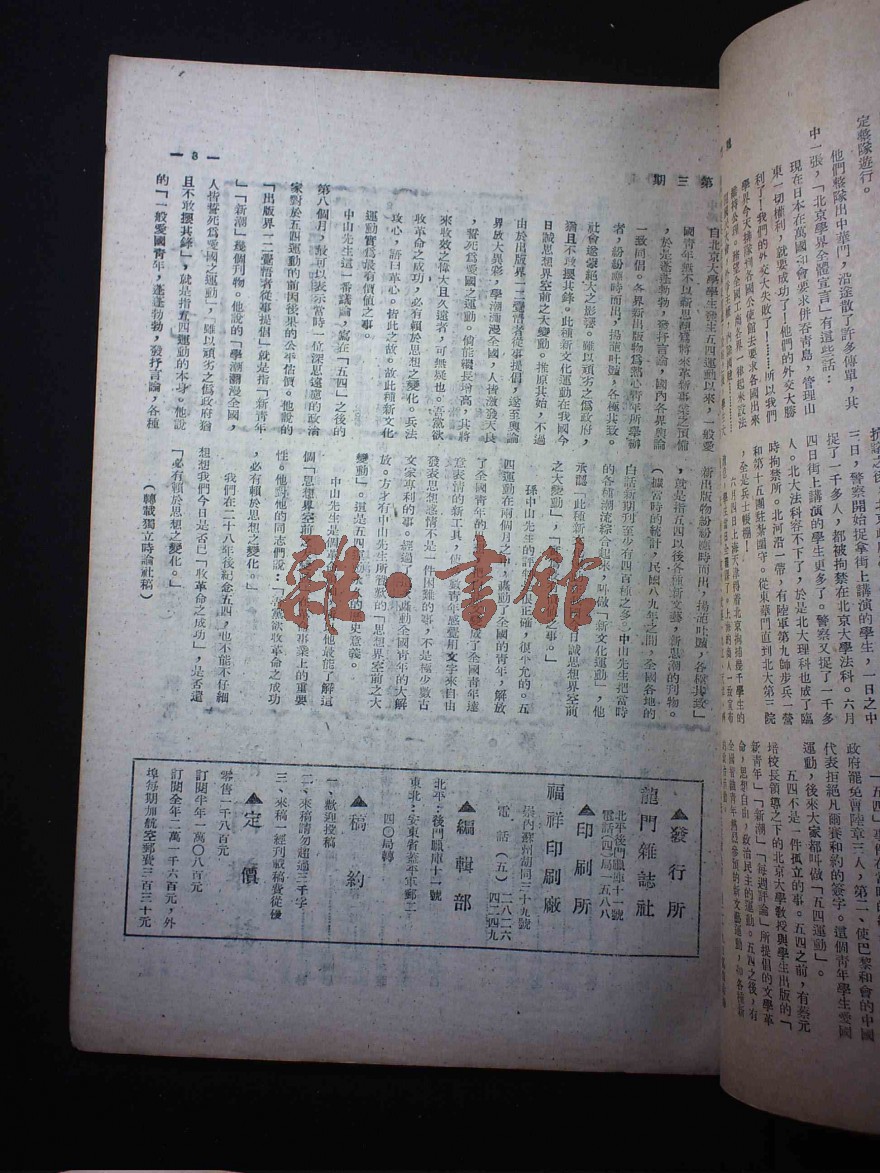 定整隊遊行。
他們整隊出中華門，沿途散了許多傳單，其
中一張，「北京學界全體宣言」有這些話：
現在日本在萬國和會要求併吞青島，管理山
東一切權利，就要成功了！他們的外交大勝
利了！我們的外交大失敗了！……所以我們
學界今天排隊到各國公使館去要求各國出來
三日，警察開始捉拿街上講演的學生，一日之中
捉了一千多人，都被拘禁在北京大學法科。六月
四日街上講演的學生更多了。警察又捉了一千多
人。北大法科容不下了，於是北大理科也成了臨
時拘禁所。北河沿一帶，有陸軍第九師步兵一營
和第十五團駐紮圍守。從東華門直到北大第三院
，全是兵士帳棚！
六月四日上海天津得着北京拘捕幾千學生的
政府罷免曹陸章三人，第二、使巴黎和會的中國
代表拒絕凡爾賽和約的簽字。這個青年學生愛國
運動，後來大家都叫做「五四運動」。
五四不是一件孤立的事。五四之前，有蔡元
培校長領導之下的北京大學教授與學生出版的「
新青年」「新潮」「每週評論」所提倡的文學革
命，思想自由，政治民主的運動。五四之後，有
全國智識青年熱烈參預的新文藝運動，和各種新
第三期
— 3 —
自北京大學學生發生五四運動以來，一般愛
國青年無不以新思想爲將來革新事業之預備
，於是蓬蓬勃勃，發抒言論，國內各界輿論
一致同倡。各界新出版物爲熱心青年所舉辦
者，紛紛應時而出，揚葩吐豔，各極其致。
社會遂蒙絕大之影響。雖以頑劣之僞政府，
猶且不敢攖其鋒。此種新文化運動在我國今
日誠思想界空前之大變動。推原其始，不過
由於出版界一二覺悟者從事提倡，遂至輿論
界放大異彩，學潮瀰漫全國，人皆激發天良
，誓死爲愛國之運動。倘能繼長增高，其將
來收效之偉大且久遠者，可無疑也。吾黨欲
收革命之成功，必有賴於思想之變化。兵法
攻心，語曰革心。皆此之故。故此種新文化
運動實爲最有價值之事。
中山先生這一番議論，寫在「五四」之後的
第八個月，最可以表示當時一位深思遠慮的政治
家對於五四運動的前因後果的公平估價。他說的
「出版界一二覺悟者從事提倡」就是指「新青年
」「新潮」幾個刊物。他說的「學潮瀰漫全國，
人皆誓死爲愛國之運動」，「雖以頑劣之僞政府猶
且不敢攖其鋒」，就是指五四運動的本身。他說
的「一般愛國青年，蓬蓬勃勃，發抒言論，各種
新出版物紛紛應時而出，揚葩吐豔，各極其致」
，就是指五四以後各種新文藝，新思潮的刊物。
（據當時的統計，民國八九年之間，全國各地的
白話新期刊至少有四百種之多。中山先生把當時
的各種潮流綜合起來，叫做「新文化運動」，他
承認「此種新文化運動在我國今日誠思想界空前
之大變動」，
孫中山先生的評
四運動在兩個月之中，轟動全國的青年，解放
了全國青年的
意表情的新工具，使
發表思想感情不是一件困難的事，不是極少數古
文家專利的事。經過
放。方才有中山先生所贊歎的「思想界空前之大
變動」。這是五四
中山先生是個革命
個「思想界空前之
性。他對他的同志們說：「吾黨欲收革命之成功
，必有賴於思想之變化。」
我們在二十八年後紀念五四，也不能不仔細
想想我們今日是否已「收革命之成功」，是否還
「必有賴於思想之變化。」
（轉載獨立時論社稿）
▲發行所
龍門雜誌社
北平後門臘庫十一號
電話（四）局一五八八
▲印刷所
福祥印刷廠
崇內蘇州胡同三十九號
電話（五）二八二六
四二四九
▲編輯部
北平：後門臘庫十一號
東北：安東省蓋平軍郵三
四〇局轉
▲稿約
一、歡迎投稿
二、來稿請勿超過三千字
三、來稿一經刊載稿費從優
▲定價
零售一千八百元
訂閱半年一萬〇八百元
訂閱全年二萬一千六百元，外
埠每期加航空郵費三百三十元
雜·書館